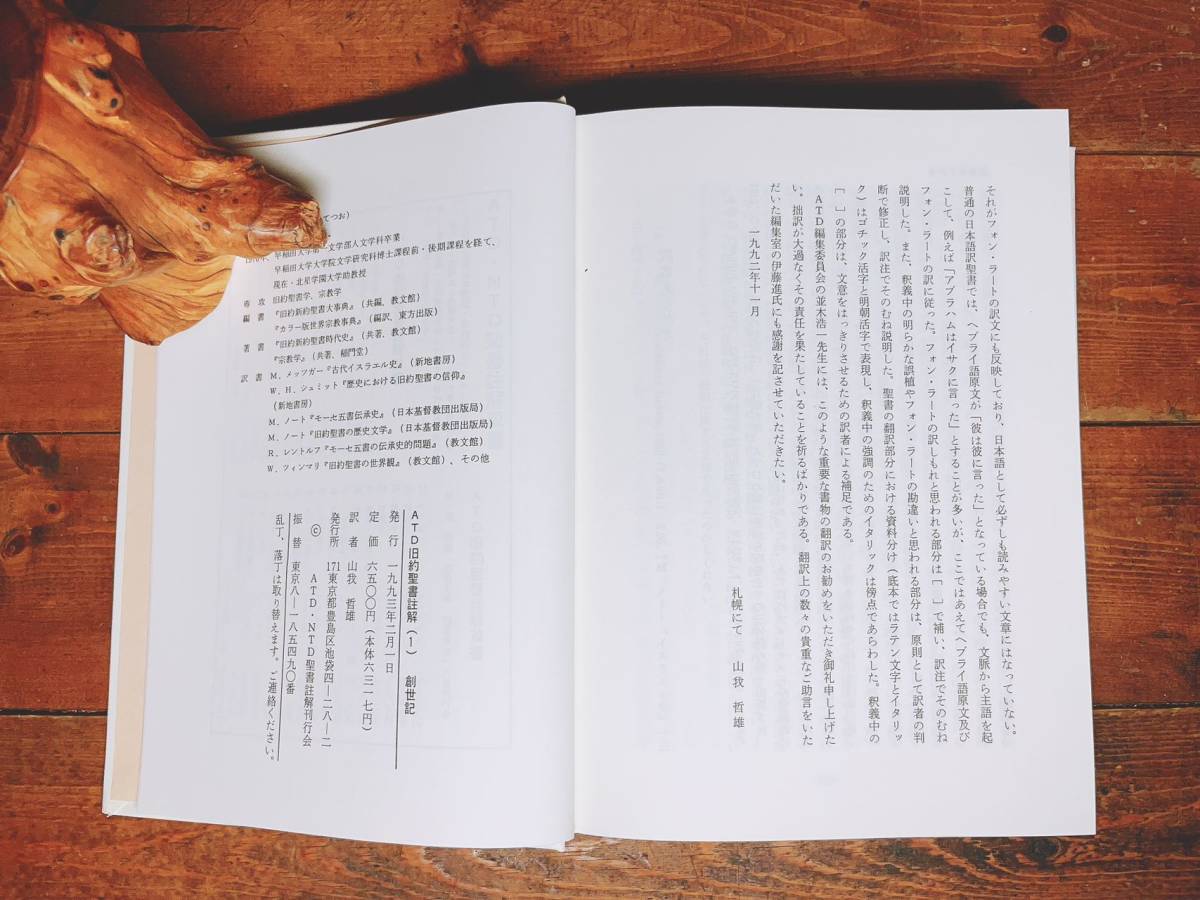 それがフォン・ラートの訳文にも反映しており、日本語として必ずしも読みやすい文章にはなっていない。
普通の日本語訳聖書では、ヘブライ語原文が「彼は彼に言った」となっている場合でも、文脈から主語を起
こして、例えば「アブラハムはイサクに言った」とすることが多いが、ここではあえてヘブライ語原文及び
フォン・ラートの訳に従った。フォン・ラートの訳しもれと思われる部分は［ ］で補い、訳注でそのむね
説明した。また、釈義中の明らかな誤植やフォン・ラートの勘違いと思われる部分は、原則として訳者の判
断で修正し、訳注でそのむね説明した。聖書の翻訳部分における資料分け（底本ではラテン文字とイタリッ
ク）はゴチック活字と明朝活字で表現し、釈義中の強調のためのイタリックは傍点であらわした。釈義中の
［ ］の部分は、文意をはっきりさせるための訳者による補足である。
ATD編集委員会の並木浩一先生には、このような重要な書物の翻訳のお勧めをいただき御礼申し上げた
い。拙訳が大過なくその責任を果たしていることを祈るばかりである。翻訳上の数々の貴重なご助言をいた
だいた編集室の伊藤進氏にも感謝を記させていただきたい。
一九九二年十一月
札幌にて 山我 哲雄
てつお）
早稲田大学第一文学部人文学科卒業
早稲田大学大学院文学研究科博士課程前・後期課程を経て、
現在・北星学園大学助教授
専 攻 旧約聖書学、宗教学
編 書 『旧約新約聖書大事典』（共編、教文館）
『カラー版世界宗教事典』（編訳、東方出版）
著 書 『旧約新約聖書時代史』（共著、教文館）
『宗教学』（共著、稲門堂）
訳 書 M．メッツガー『古代イスラエル史』（新地書房）
W．H．シュミット『歴史における旧約聖書の信仰』
（新地書房）
M．ノート『モーセ五書伝承史』（日本基督教団出版局）
M．ノート『旧約聖書の歴史文学』（日本基督教団出版局）
R．レントルフ『モーセ五書の伝承史的問題』（教文館）
W．ツィンマリ『旧約聖書の世界観』（教文館）、その他
ATD旧約聖書註解（1） 創世記
発 行 一九九三年二月一日
定 価 六五〇〇円（本体六三一七円）
訳 者 山我 哲雄
発行所 171東京都豊島区池袋四―二八―二
© ATD・NTD聖書註解刊行会
振 替 東京八―一八五四九〇番
乱丁、落丁は取り替えます。ご連絡ください。